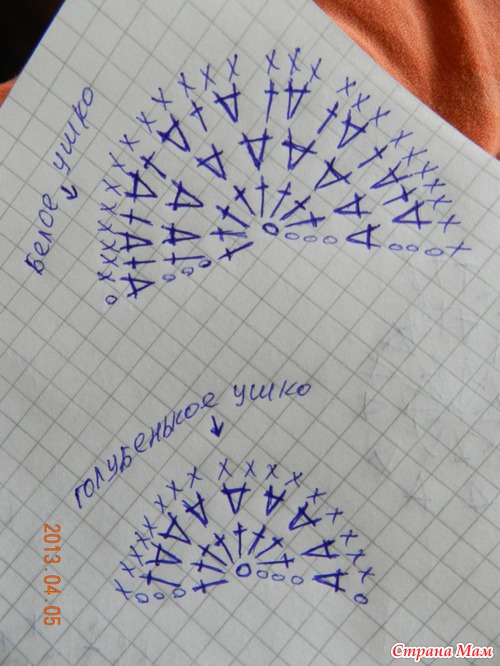 Белое ушко
голубенькое ушко
2013.04.05
Страна Мам